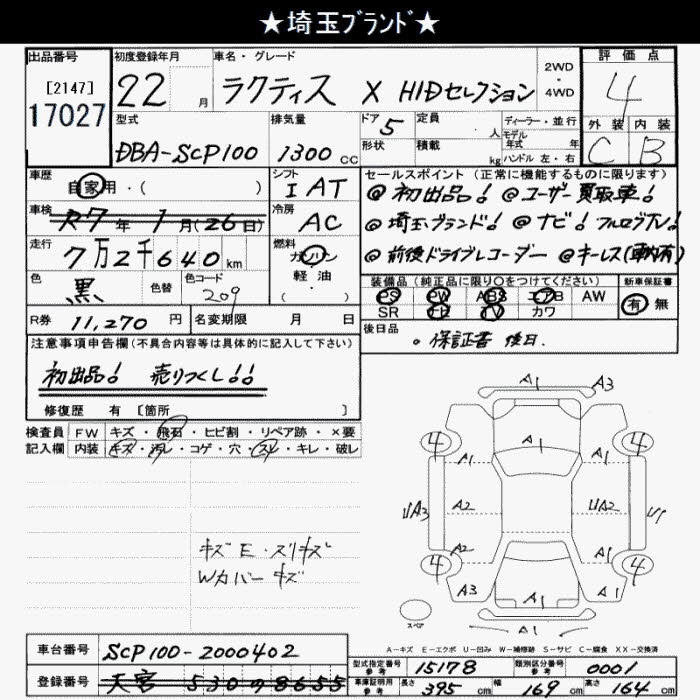 ★埼玉ブランド★
出品番号 初度登録年月 車名・グレード 評価点
[2147]
17027
22 月 ラクティス X HIDセレクション 2WD・4WD 4
型式 排気量 ドア 5 定員 人 ディーラー・並行 外装 内装
モデル年式 年
DBA-SCP100 1300 CC 形状 積載 kg ハンドル 左・右 C B
車歴 シフト セールスポイント(正常に機能するものに限ります)
自家用・( ) I AT @初出品! @ユーザー買取車!
車検 R7年1月(26日) 冷房 AC @埼玉ブランド! @ナビ! フルセグTV!
走行 7万2千640km 燃料 ガソリン・軽油・( ) @前後ドライブレコーダー @キーレス(車内有)
色 黒 色替 色コード 209 装備品(純正品に限り〇をつけてください) 新車保証書
PS PW ABS エアB AW 有 無
SR ナビ TV カワ
R券 11,270円 名変期限 月 日 後日品
。保証書 後日.
注意事項申告欄(不具合内容等は具体的に記入して下さい)
初出品! 売りつくし!!
修復歴 有 [箇所 ]
検査員 FW キズ・飛石・ヒビ割・リペア跡・×要
記入欄 内装 キズ・汚レ・コゲ・穴・スレ・キレ・破レ
A1 A3
4 A1 4
A1 A1
UA3 A2 UA2 U1
A2 A1
4 A1 4
A3 A1 A1
スペア A1
キズE・スリキズ
Wカバーキズ
A-キズ E-エクボ U-凹み W-補修跡 S-サビ C-腐食 XX-交換済
車台番号 SCP100-2000402
型式指定番号 参考 15178 類別区分番号 参考 0001
登録番号 530 8655
車庫証明用 参考 長さ 395cm 幅 169cm 高さ 164cm